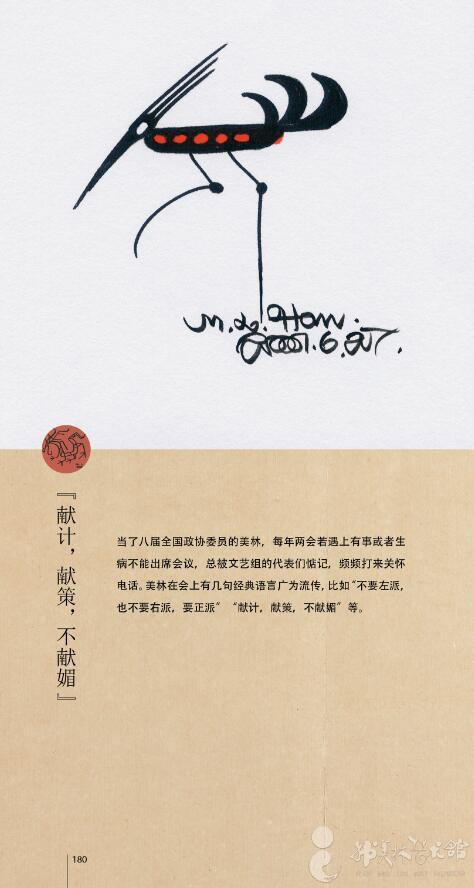 M.L.Han.
2001.6.27.
『献计，献策，不献媚』
当了八届全国政协委员的美林，每年两会若遇上有事或者生
病不能出席会议，总被文艺组的代表们惦记，频频打来关怀
电话。美林在会上有几句经典语言广为流传，比如“不要左派，
也不要右派，要正派”“献计，献策，不献媚”等。
180
韩美林艺术馆
HAN MEI LIN ART MUSEUM